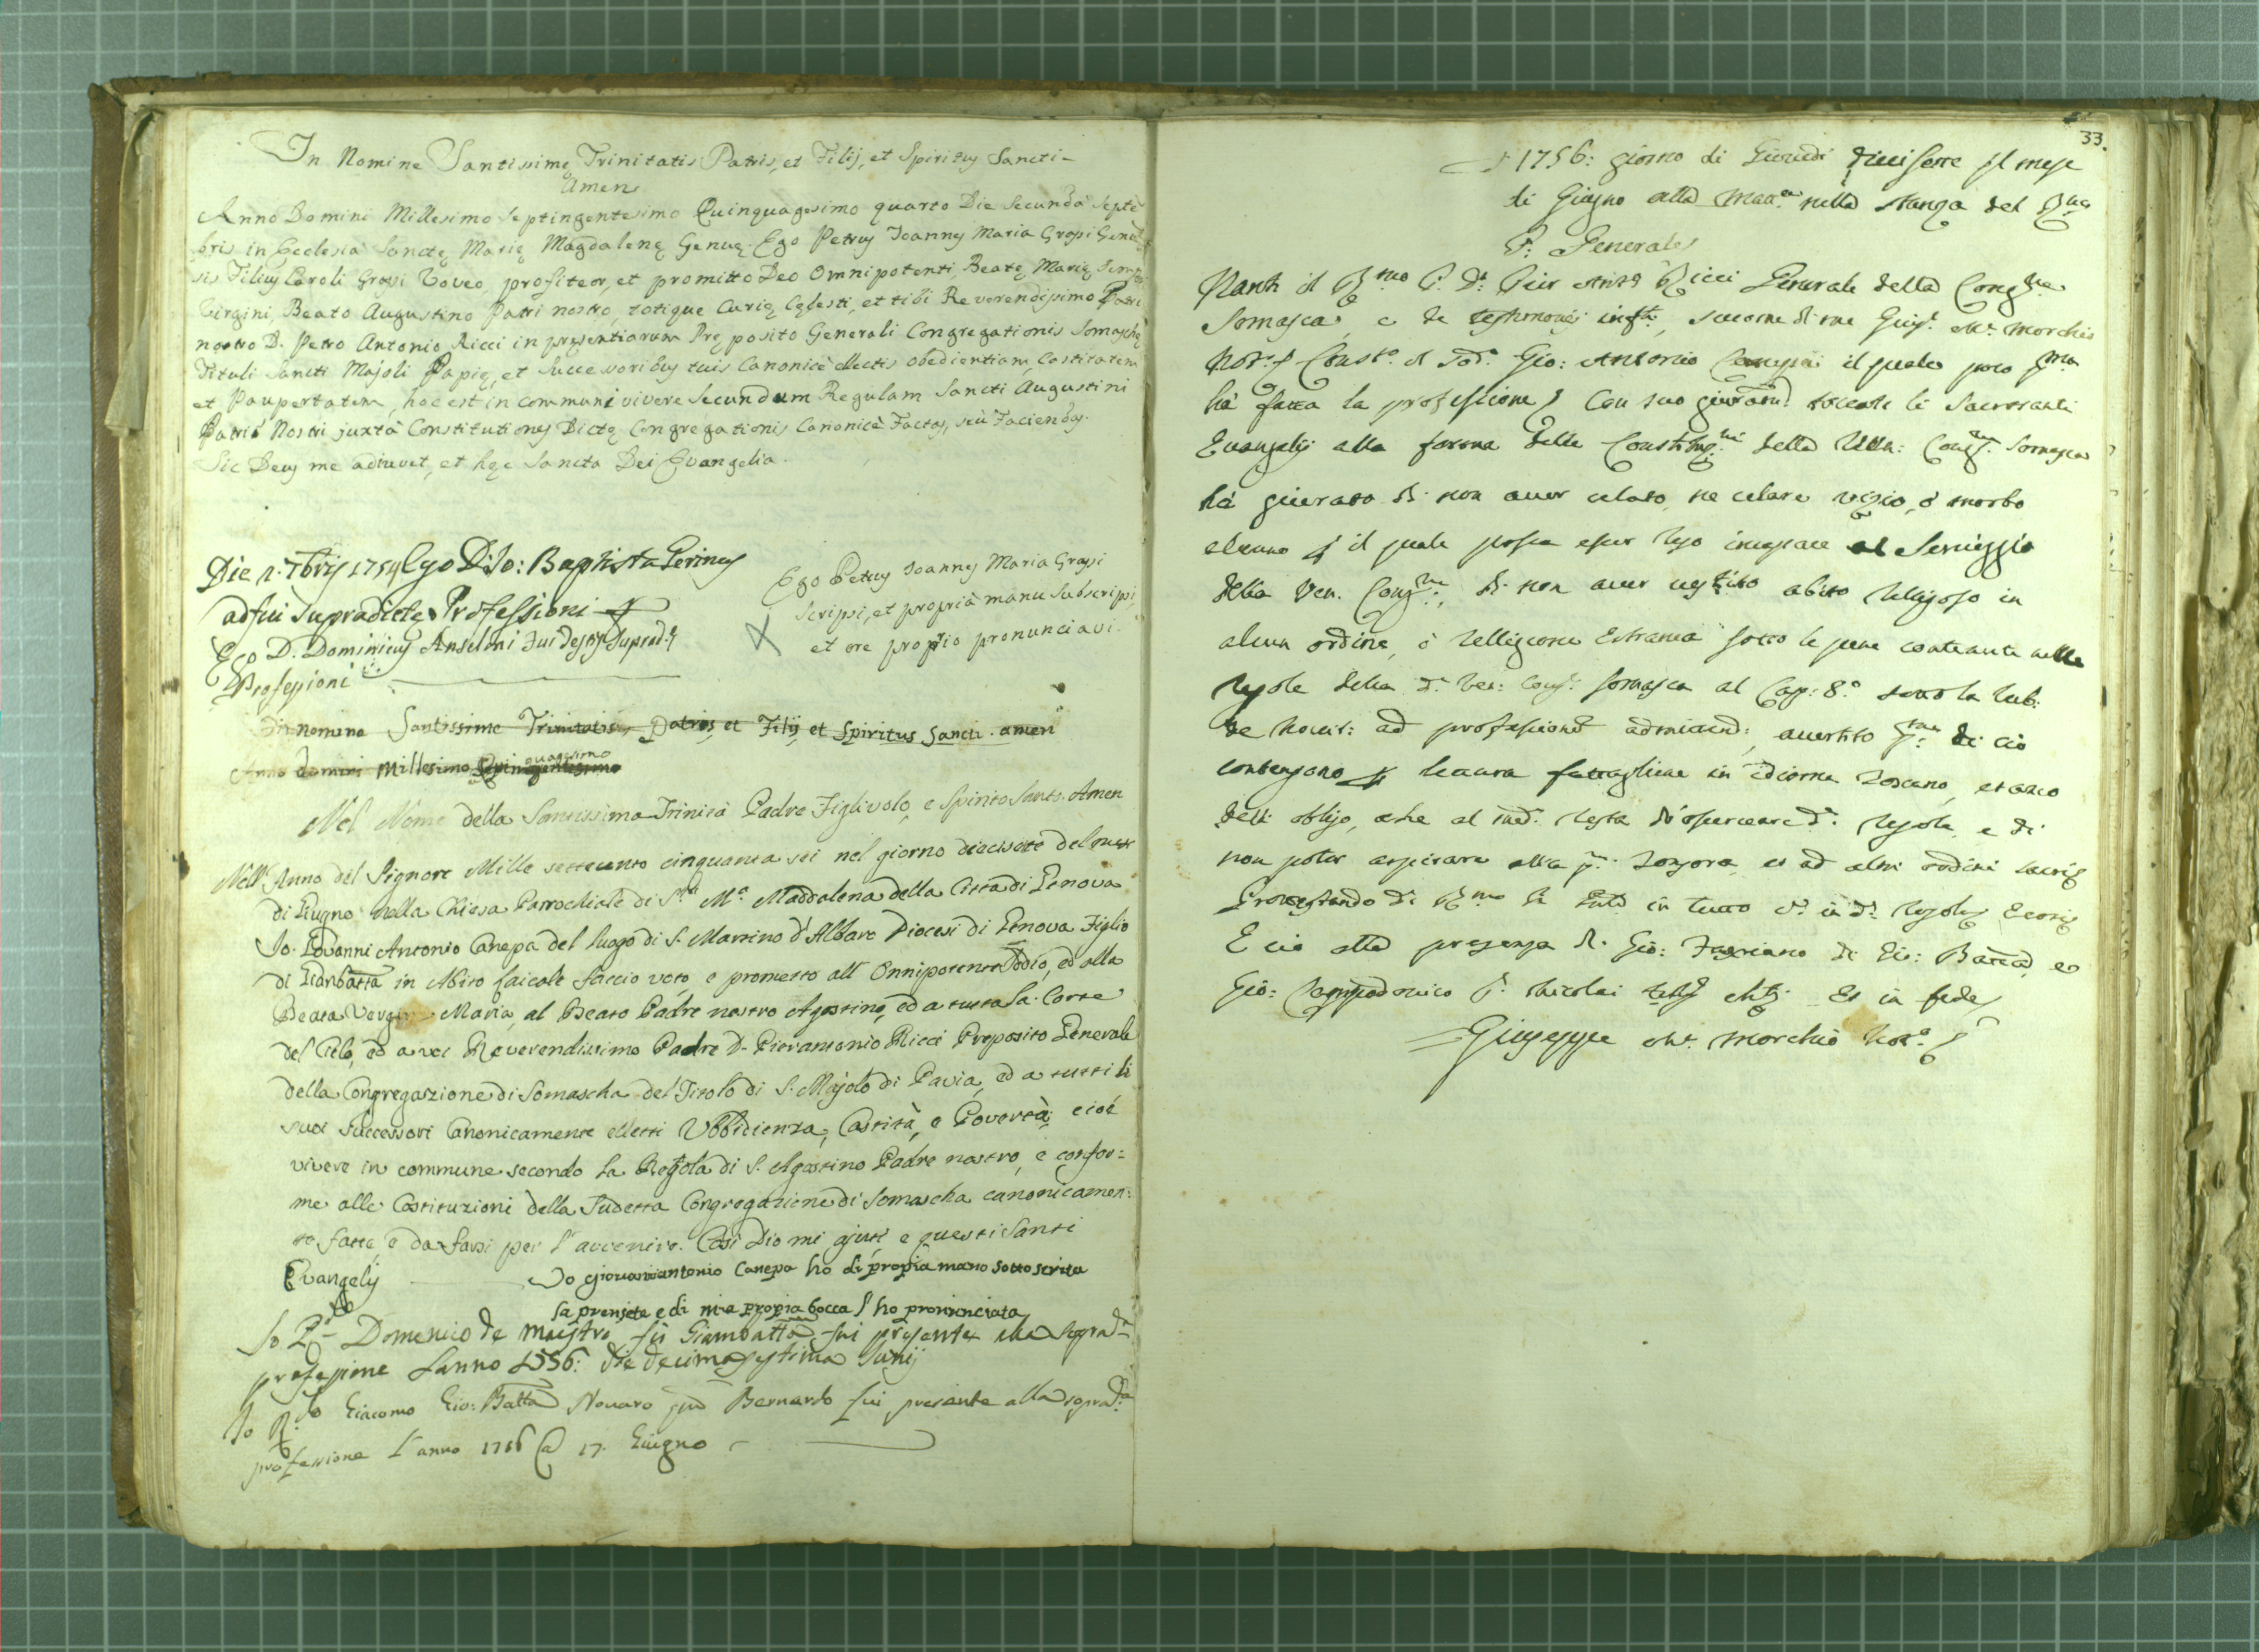 In Nomine Santissimę Trinitatis Patris, et Filij, et Spiritus Sancti-
Amen
Anno Domini Millesimo Septingentesimo Quinquagesimo quarto Die Secunda Septē
bris in Ecclesia Sanctę Marię Magdalenę Genuę. Ego Petrus Joannes Maria Grossi Genuē
sis Filius Caroli Grossi Voveo, profiteor, et promitto Deo Omnipotenti, Beatę Marię Semper
Virgini, Beato Augustino Patri nostro, totique Curię Cęlesti, et tibi Reverendissimo Patri
nostro D. Petro Antonio Ricci in pręsentiarum Pręposito Generali Congregationis Somaschę
Tituli Sancti Majoli Papię, et Successoribus tuis Canonicè electis obedientiam, Castitatem
et Paupertatem, hoc est in communi vivere Secundum Regulam Sancti Augustini
Patris Nostri juxtà Constitutiones Dictę Congregationis Canonicè Factas, seù Faciendas.
Sic Deus me adiuvet, et hęc Sancta Dei Evangelia.
Die 2. 7bris 1754 Ego D. Jo: Baptista Perinus
adfui Supradictę Professioni
Ego D. Dominicus Anselmi Fui Supradę
Professioni
Ego Petrus Joannes Maria Grossi
scripsi, et propria manu subscripsi,
et ore proprio pronunciavi.
In nomine Santissime Trinitatis Patris et Filij et Spiritus Sancti. amen
Anno domini Millesimo Quinquagesimo
Nel Nome della Santissima Trinità Padre Figlivolo, e Spirito Santo. Amen
Nell'Anno del Signore Mille settecento cinquanta sei nel giorno diecisette del mese
di Giugno nella Chiesa Parrochiale di S.ta M.a Maddalena della Città di Genova
Io Giovanni Antonio Canepa del luogo di S. Martino d'Albaro Diocesi di Genova Figlio
di Gianbatta in Abito Laicale faccio voto, e prometto all'Onnipotente Iddio, ed alla
Beata Vergine Maria, al Beato Padre nostro Agostino, ed a tutta la Corte
del Cielo, ed a voi Reverendissimo Padre D. Pierantonio Ricci Preposito Generale
della Congregazione di Somascha del Titolo di S. Majolo di Pavia, ed a tutti li
suoi successori Canonicamente eletti Ubbidienza, Castità, e Povertà, cioè
vivere in commune secondo la Regola di S. Agostino Padre nostro, e confor=
me alle Costituzioni della Sudetta Congregazione di Somascha canonicamen=
te fatte, e da farsi per l'avvenire. Così Dio mi ajuti e questi Santi
Evangelij
Io giovaniantonio Canepa ho di propia mano sotto scrita
la presjete e di mia propia bocca l'ho pronunciata
Io Domenico de Maestro fù Giambatta fui presente alla soprada
professione Lanno 1756: die decima septima Junij
Io Giacomo Gio: Batta Novaro Bernardo fui presente alla soprada
professione L'anno 1756 @ 17. Giugno
33.
1756: giorno di Giovedi diecisette il mese
di Giugno alla matt.a nella stanza del Rmo
P: Generale
Nanti il Rmo P. D. Pier Ant.o Ricci Generale della Congne
Somasca, e de testimonij infti, 
Not.o Gio: Antonio Canepa il quale poco prima
hà fatta la professione con suo giuramto toccate le Sacrosanti
Evangelij alla forma delle Constituzni della Ven: Congne Somasca
hà giurato di non aver celato, ne celare vizio, ò morbo
alcuno il quale possa esser al Serviggio
della Ven. Congne, di non aver vestito abito Religioso in
alcun ordine, ò Relligione Estranea sotto le pene contenute nelle
regole della da Ven: Congne Somasca al Cap: 8.o sotto la Rub.
de Novit: ad professionē admittend:, avertito di ciò
contengono lettura fattagliene in idioma Toscano, et anco
dell obligo, che al med.o resta di osservare de Regole, e di
non poter aspirare alla Tonsora, et ad altri ordini sacri
in tutto
E ciò alla presenza di Gio: di Gio: Batta, e
Gio: Campodonico Nicolai Et in fede
Giuseppe Morchio Not.o